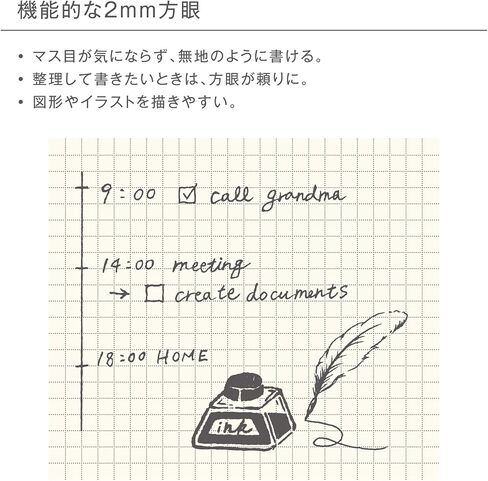 機能的な2mm方眼
• マス目が気にならず、無地のように書ける。
• 整理して書きたいときは、方眼が頼りに。
• 図形やイラストを描きやすい。
9:00 ☑ call grandma
14:00 meeting
→ □ create documents
18:00 HOME
ink